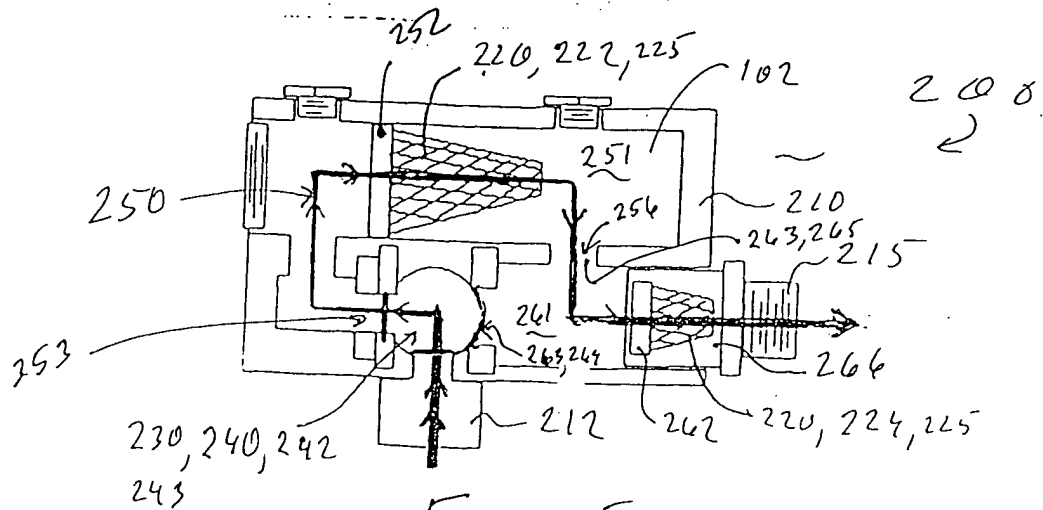 252
220, 222, 225
102
200
251
250
256
210
263, 265
215
261
263, 264
253
266
230, 240, 242
243
212
262
220, 224, 225